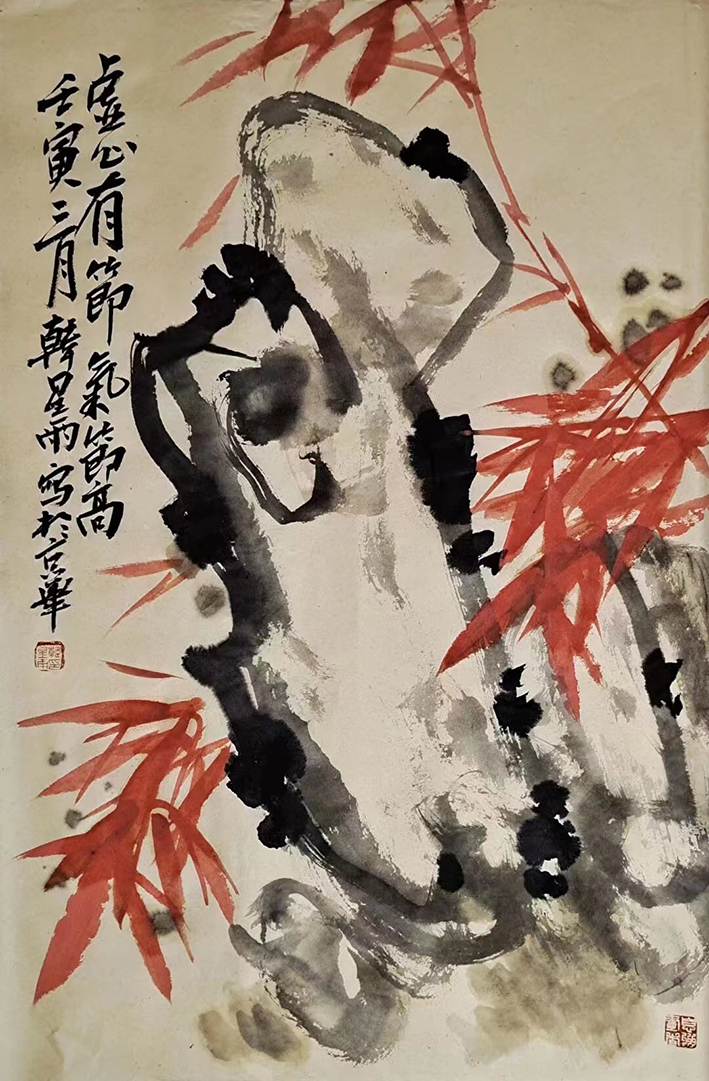 虚心有節氣節高
壬寅三月韓星雨寫於京華